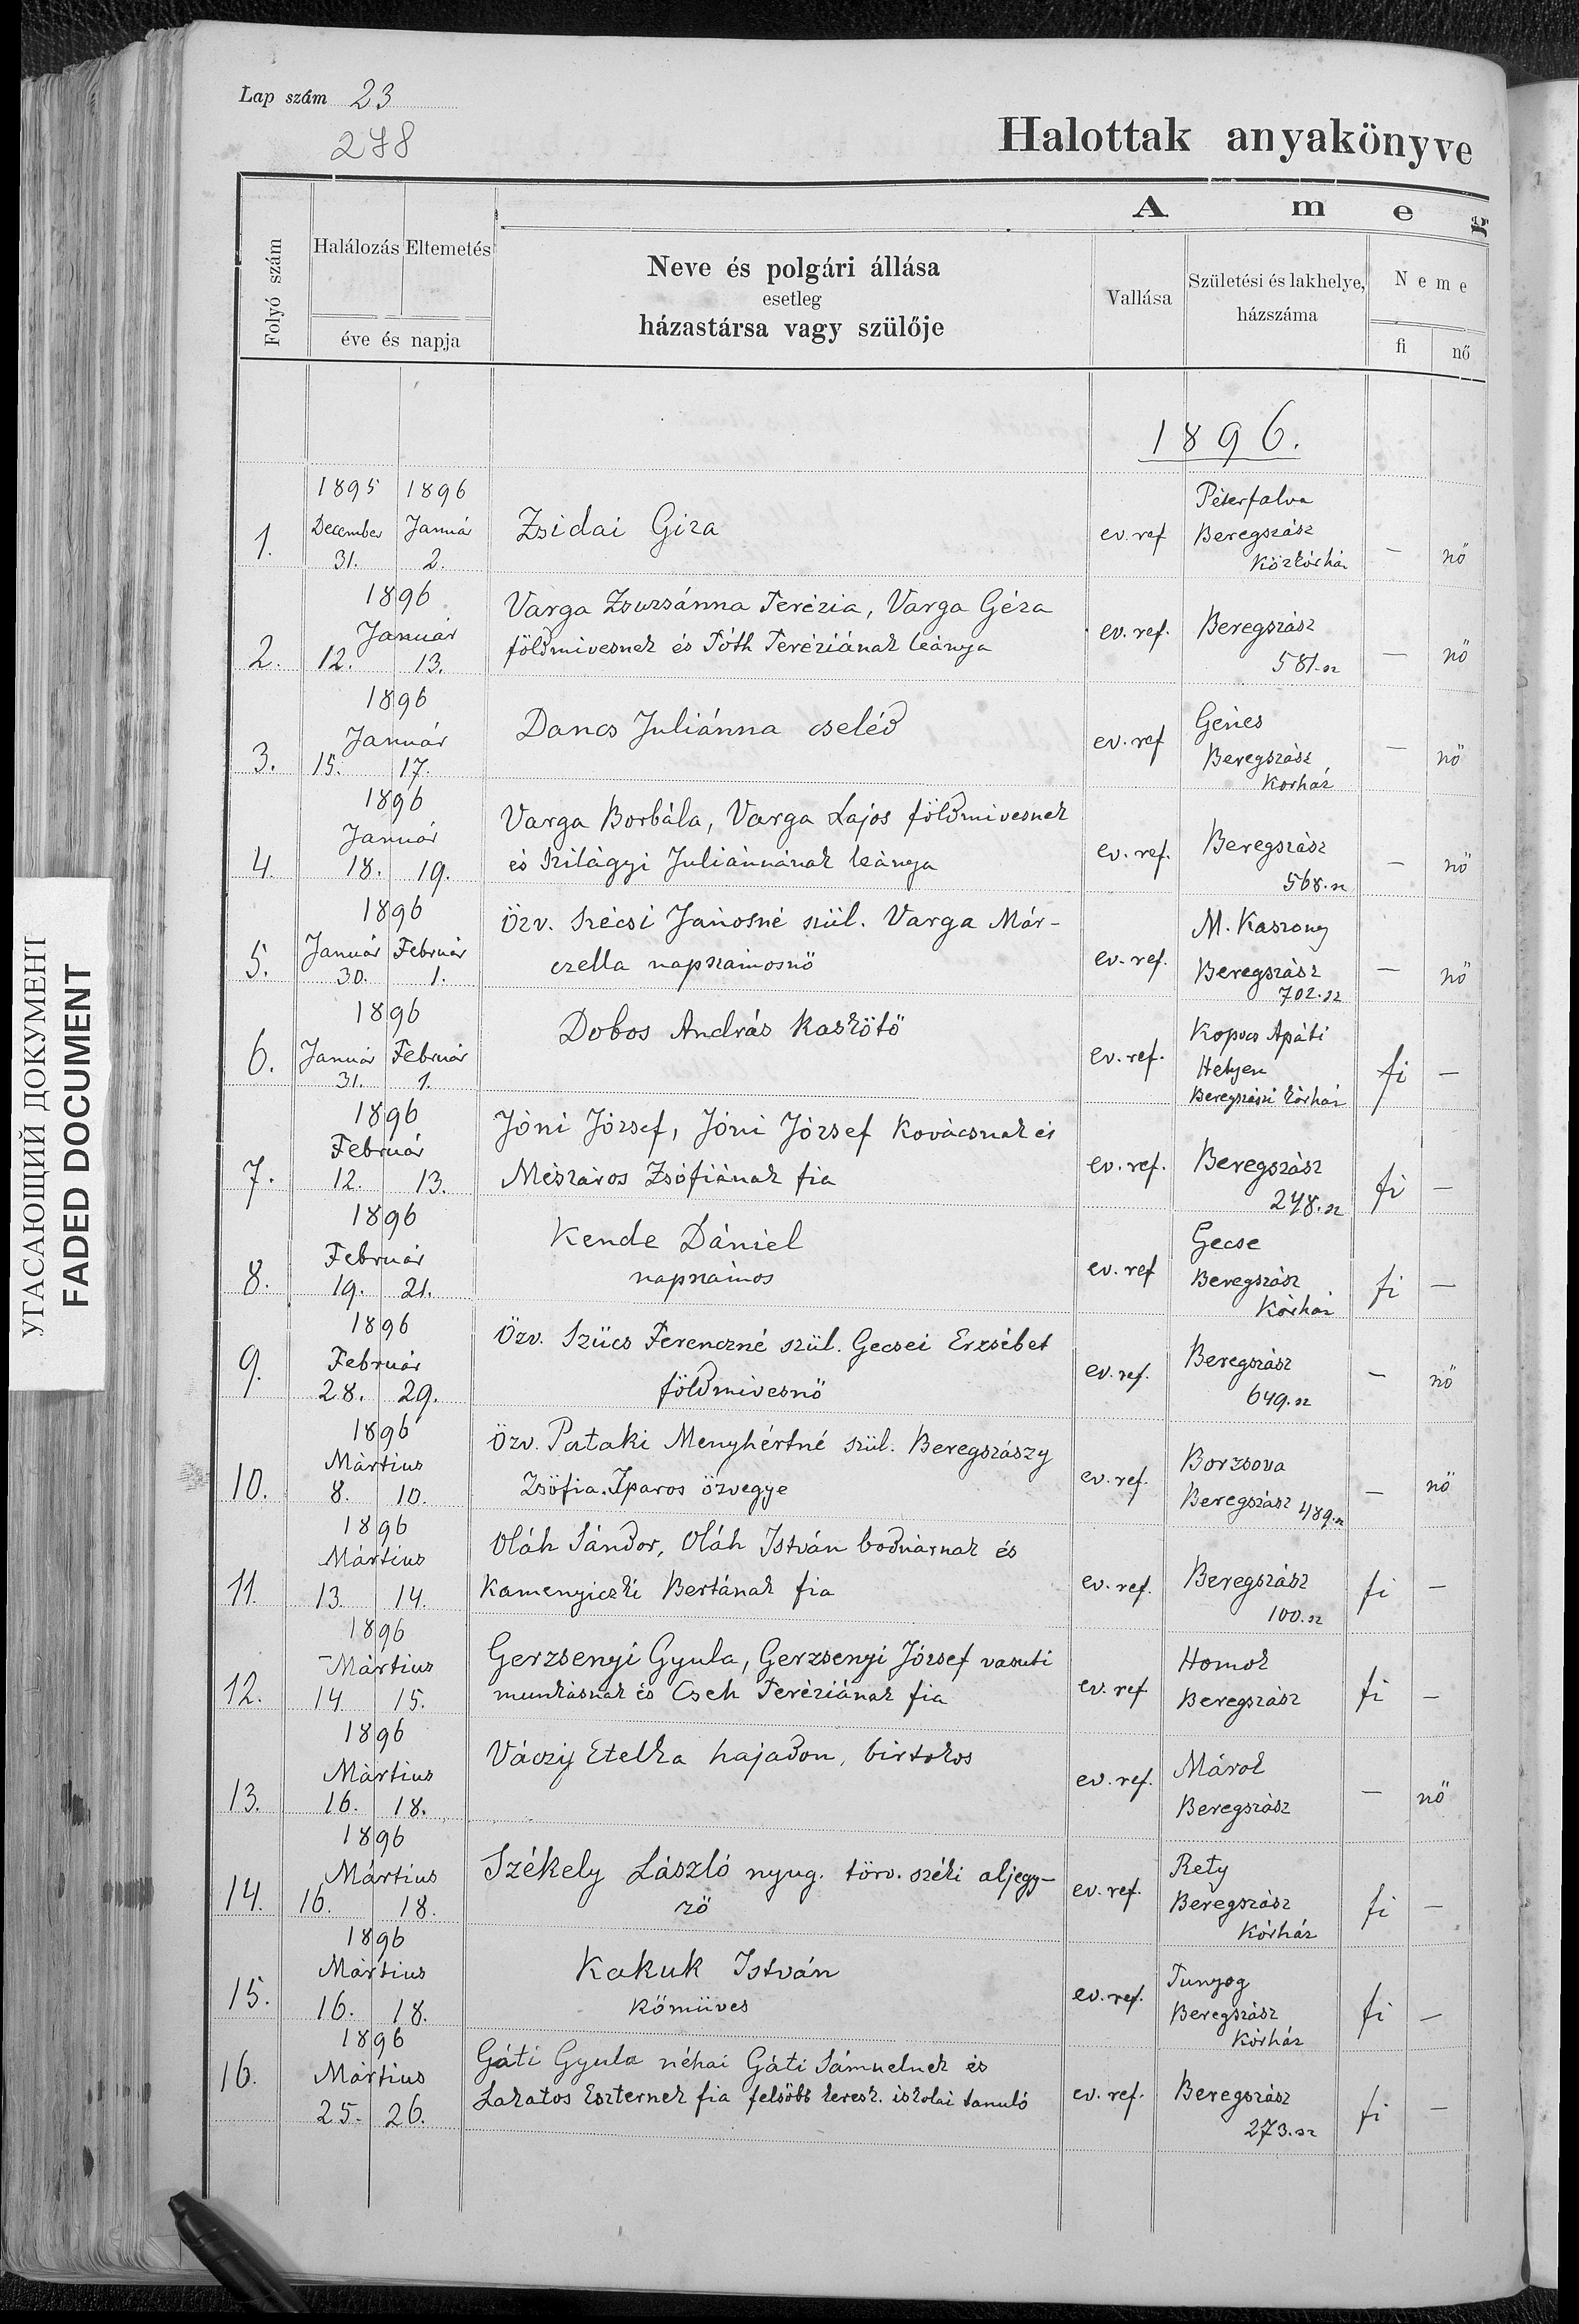 Lap szám 23
278
Halottak anyakönyve
A m e g
Folyó szám
Halálozás Eltemetés
éve és napja
Neve és polgári állása
esetleg
házastársa vagy szülője
Vallása
Születési és lakhelye,
házszáma
Neme
fi nő
1896.
1895 1896
Péterfalva
1. December Január Zsidai Giza ev. ref Beregszász
31. 2. Közkórház — nő
1896
Varga Zsuzsánna Terézia, Varga Géza
Január
földmivesnek és Tóth Teréziának leánya ev. ref. Beregszász
2. 12. 13. 581. sz — nő
1896
Január
Dancs Juliánna cseléd ev. ref Génes
3. 15. 17. Beregszász — nő
Korház
1896
Varga Borbála, Varga Lajos földmivesnek
Január
4. 18. 19. és Szilágyi Juliánnának leánya ev. ref. Beregszász — nő
568. sz
1896
Özv. Szécsi Jánosné szül. Varga Már-
M. Kaszony
5. Január Február czella napszámosnő ev. ref. Beregszász — nő
30. 1. 702. sz
1896
Dobos András Kaskötő
Kopocs Apáti
6. Január Február ev. ref. Hetyen fi —
31. 1. Beregszászi kórház
1896
Jóni József, Jóni József Kovácsnak és
Február
7. 12. 13. Mészáros Zsófiának fia ev. ref. Beregszász fi —
248. sz
1896
Kende Dániel
Gecse
Február
8. 19. 21. napszámos ev. ref Beregszász fi —
Kórház
1896
Özv. Szücs Ferenczné szül. Gecsei Erzsébet
9. Február ev. ref. Beregszász — nő
28. 29. földmivesnő 649. sz
1896
Özv. Pataki Menyhértné szül. Beregszászy
Mártius
Borzsova
10. 8. 10. Zsófia. Iparos özvegye ev. ref. Beregszász 489. sz — nő
1896
Oláh Sándor, Oláh István bodnárnak és
Mártius
11. 13. 14. Kamenyiczki Bertának fia ev. ref. Beregszász fi —
100. sz
1896
Gerzsenyi Gyula, Gerzsenyi József vasuti
Mártius
Homok
12. 14 15. munkásnak és Cseh Teréziának fia ev. ref Beregszász fi —
1896
Váczy Etelka hajadon, birtokos
Mártius
Márok
13. 16. 18. ev. ref. Beregszász — nő
1896
Székely László nyug. törv. széki aljegy-
Mártius
Rety
14. 16. 18. ző ev. ref. Beregszász fi —
Kórház
1896
Kakuk István
Mártius
Tunyog
15. 16. 18. Kőmüves ev. ref. Beregszász fi —
Kórház
1896
Gáti Gyula néhai Gáti Sámuelnek és
16. Mártius Lakatos Eszternek fia felsőbb keresk. iskolai tanuló ev. ref. Beregszász fi —
25. 26. 273. sz
УГАСАЮЩИЙ ДОКУМЕНТ
FADED DOCUMENT